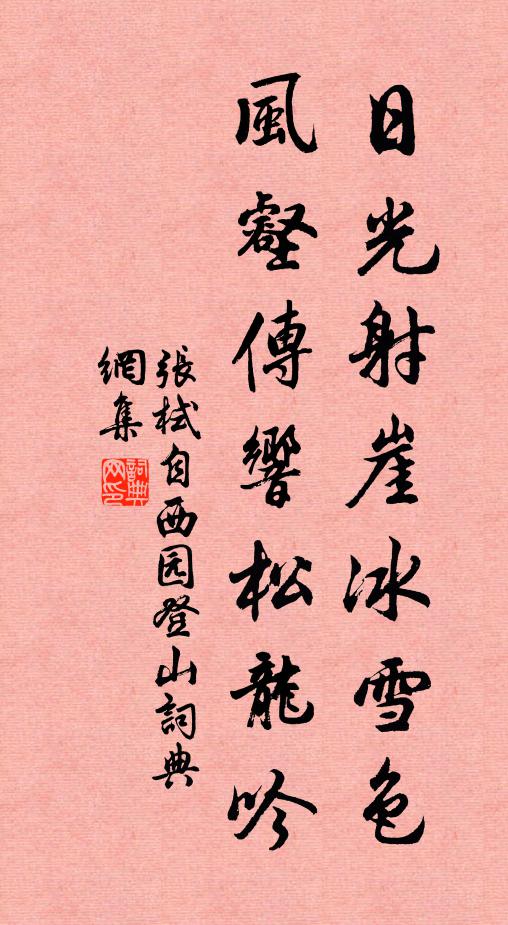 日光射崖冰雪色
風壑傳響松龍吟
張栻自西园登山詞典
網集
詞典网印